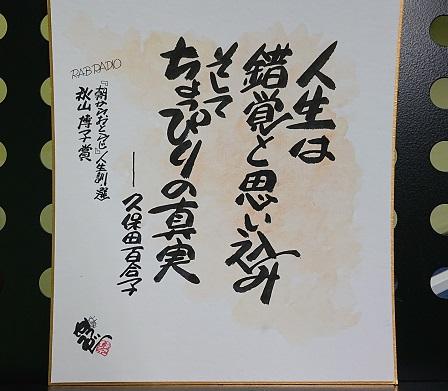 人生は
錯覚と思い込み
そして
ちょっぴりの真実
──久保田百合子
RAB RADIO
人生訓選
秋山博子賞